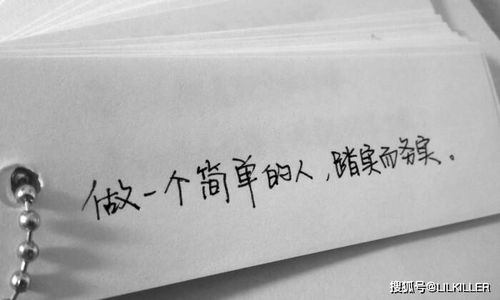 做一个简单的人，踏实而务实。
搜狐号@LILKILLER